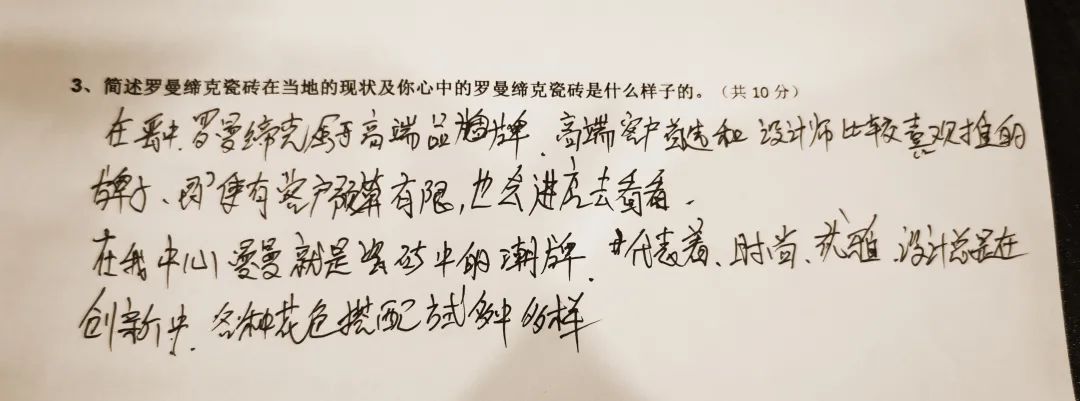 3、简述罗曼缔克瓷砖在当地的现状及你心中的罗曼缔克瓷砖是什么样子的。（共 10 分）
在晋中，罗曼缔克属于高端品牌，高端客户首选和设计师比较喜欢推的
牌子、即便有客户预算有限，也会进店去看看。
在我中心曼曼就是瓷砖中的潮牌，代表着、时尚、优雅、设计总是在
创新中，各种花色搭配方式多中多样